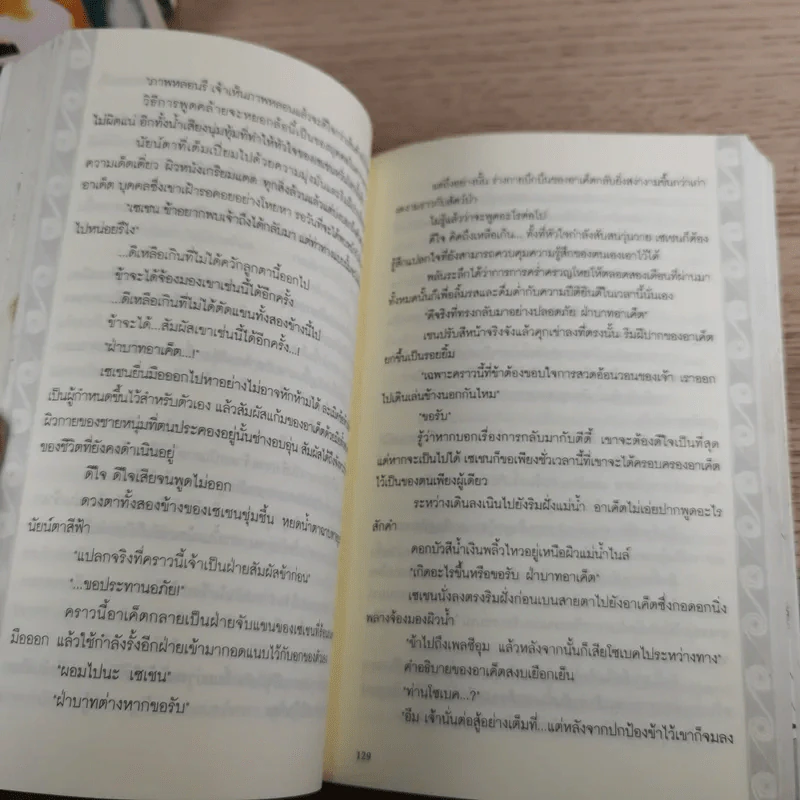 "ภาพหลอนรึ เจ้าเห็นภาพหลอนแล้วจะดีใจกว่าเห็นตัว
วิธีการพูดคล้ายจะหยอกล้อนี้เป็นของ
ไม่ผิดแน่ อีกทั้งน้ำเสียงนุ่มทุ้มที่ทำให้หัวใจของเซเชน
นัยน์ตาที่เต็มเปี่ยมไปด้วยความมุ่งมั่นและ
ความเด็ดเดี่ยว ผิวหนังเกรียมแดด ทุกสิ่งล้วนแล้วแต่
อาเค็ต บุคคลซึ่งเขาเฝ้ารอคอยอย่างโหยหา รอวันที่จะได้พบ
"เซเชน ข้าอยากพบเจ้าถึงได้กลับมา แต่ท่าทาง
ไปหน่อยรึไง"
...ดีเหลือเกินที่ไม่ได้ควักลูกตานี้ออกไป
ข้าจะได้จ้องมองเขาเช่นนี้ได้อีกครั้ง
...ดีเหลือเกินที่ไม่ได้ตัดแขนทั้งสองข้างนี้ไป
ข้าจะได้...สัมผัสเขาเช่นนี้ได้อีกครั้ง...!
"ฝ่าบาทอาเค็ต...!"
เซเชนยื่นมือออกไปหาอย่างไม่อาจหักห้ามได้
เป็นผู้กำหนดขึ้นไว้สำหรับตัวเอง แล้วสัมผัสแก้มของอาเค็ต
ผิวกายของชายหนุ่มที่ตนประคองอยู่นั้นช่างอบอุ่น สัมผัสได้ถึง
ของชีวิตที่ยังคงดำเนินอยู่
ดีใจ ดีใจเสียจนพูดไม่ออก
ดวงตาทั้งสองข้างของเซเชนชุ่มชื้น หยดน้ำตา
นัยน์ตาสีฟ้า
"แปลกจริงที่คราวนี้เจ้าเป็นฝ่ายสัมผัสข้าก่อน"
"...ขอประทานอภัย!"
คราวนี้อาเค็ตกลายเป็นฝ่ายจับแขนของเซเชนที่
มือออก แล้วใช้กำลังรั้งอีกฝ่ายเข้ามากอดแนบไว้กับอกของตัวเอง
"ผอมไปนะ เซเชน"
"ฝ่าบาทต่างหากขอรับ"
แต่ถึงอย่างนั้น ร่างกายบึกบึนของอาเค็ตกลับยิ่งสง่างามขึ้นกว่าเก่า
งดงามราวกับสัตว์ป่า
ไม่รู้แล้วว่าจะพูดอะไรต่อไป
ดีใจ คิดถึงเหลือเกิน... ทั้งที่หัวใจกำลังสับสนวุ่นวาย เซเชนก็ต้อง
รู้สึกแปลกใจที่ยังสามารถควบคุมความรู้สึกของตนเองเอาไว้ได้
พลันระลึกได้ว่าการการคร่ำครวญโหยไห้ตลอดสองเดือนที่ผ่านมา
ทั้งหมดนั้นก็เพื่อลิ้มรสและดื่มด่ำกับความปีติยินดีในเวลานี้นั่นเอง
"ดีจริงที่ทรงกลับมาอย่างปลอดภัย ฝ่าบาทอาเค็ต"
เซนปรับสีหน้าจริงจังแล้วคุกเข่าลงที่ตรงนั้น ริมฝีปากของอาเค็ต
ยกขึ้นเป็นรอยยิ้ม
"เฉพาะคราวนี้ที่ข้าต้องขอบใจการสวดอ้อนวอนของเจ้า เราออก
ไปเดินเล่นข้างนอกกันไหม"
"ขอรับ"
รู้ว่าหากบอกเรื่องการกลับมากับดีดี้ เขาจะต้องดีใจเป็นที่สุด
แต่หากจะเป็นไปได้ เซเชนก็ขอเพียงชั่วเวลานี้ที่เขาจะได้ครอบครองอาเค็ต
ไว้เป็นของตนเพียงผู้เดียว
ระหว่างเดินลงเนินไปยังริมฝั่งแม่น้ำ อาเค็ตไม่เอ่ยปากพูดอะไร
สักคำ
ดอกบัวสีน้ำเงินพลิ้วไหวอยู่เหนือผิวแม่น้ำไนล์
"เกิดอะไรขึ้นหรือขอรับ ฝ่าบาทอาเค็ต"
เซเชนนั่งลงตรงริมฝั่งก่อนเบนสายตาไปยังอาเค็ตซึ่งกอดอกนิ่ง
พลางจ้องมองผิวน้ำ
"ข้าไปถึงเพลซีอุม แล้วหลังจากนั้นก็เสียโซเบคไประหว่างทาง"
คำอธิบายของอาเค็ตสงบเยือกเย็น
"ท่านโซเบค...?"
"อืม เจ้านั่นต่อสู้อย่างเต็มที่...แต่หลังจากปกป้องข้าไว้เขาก็จมลง
129